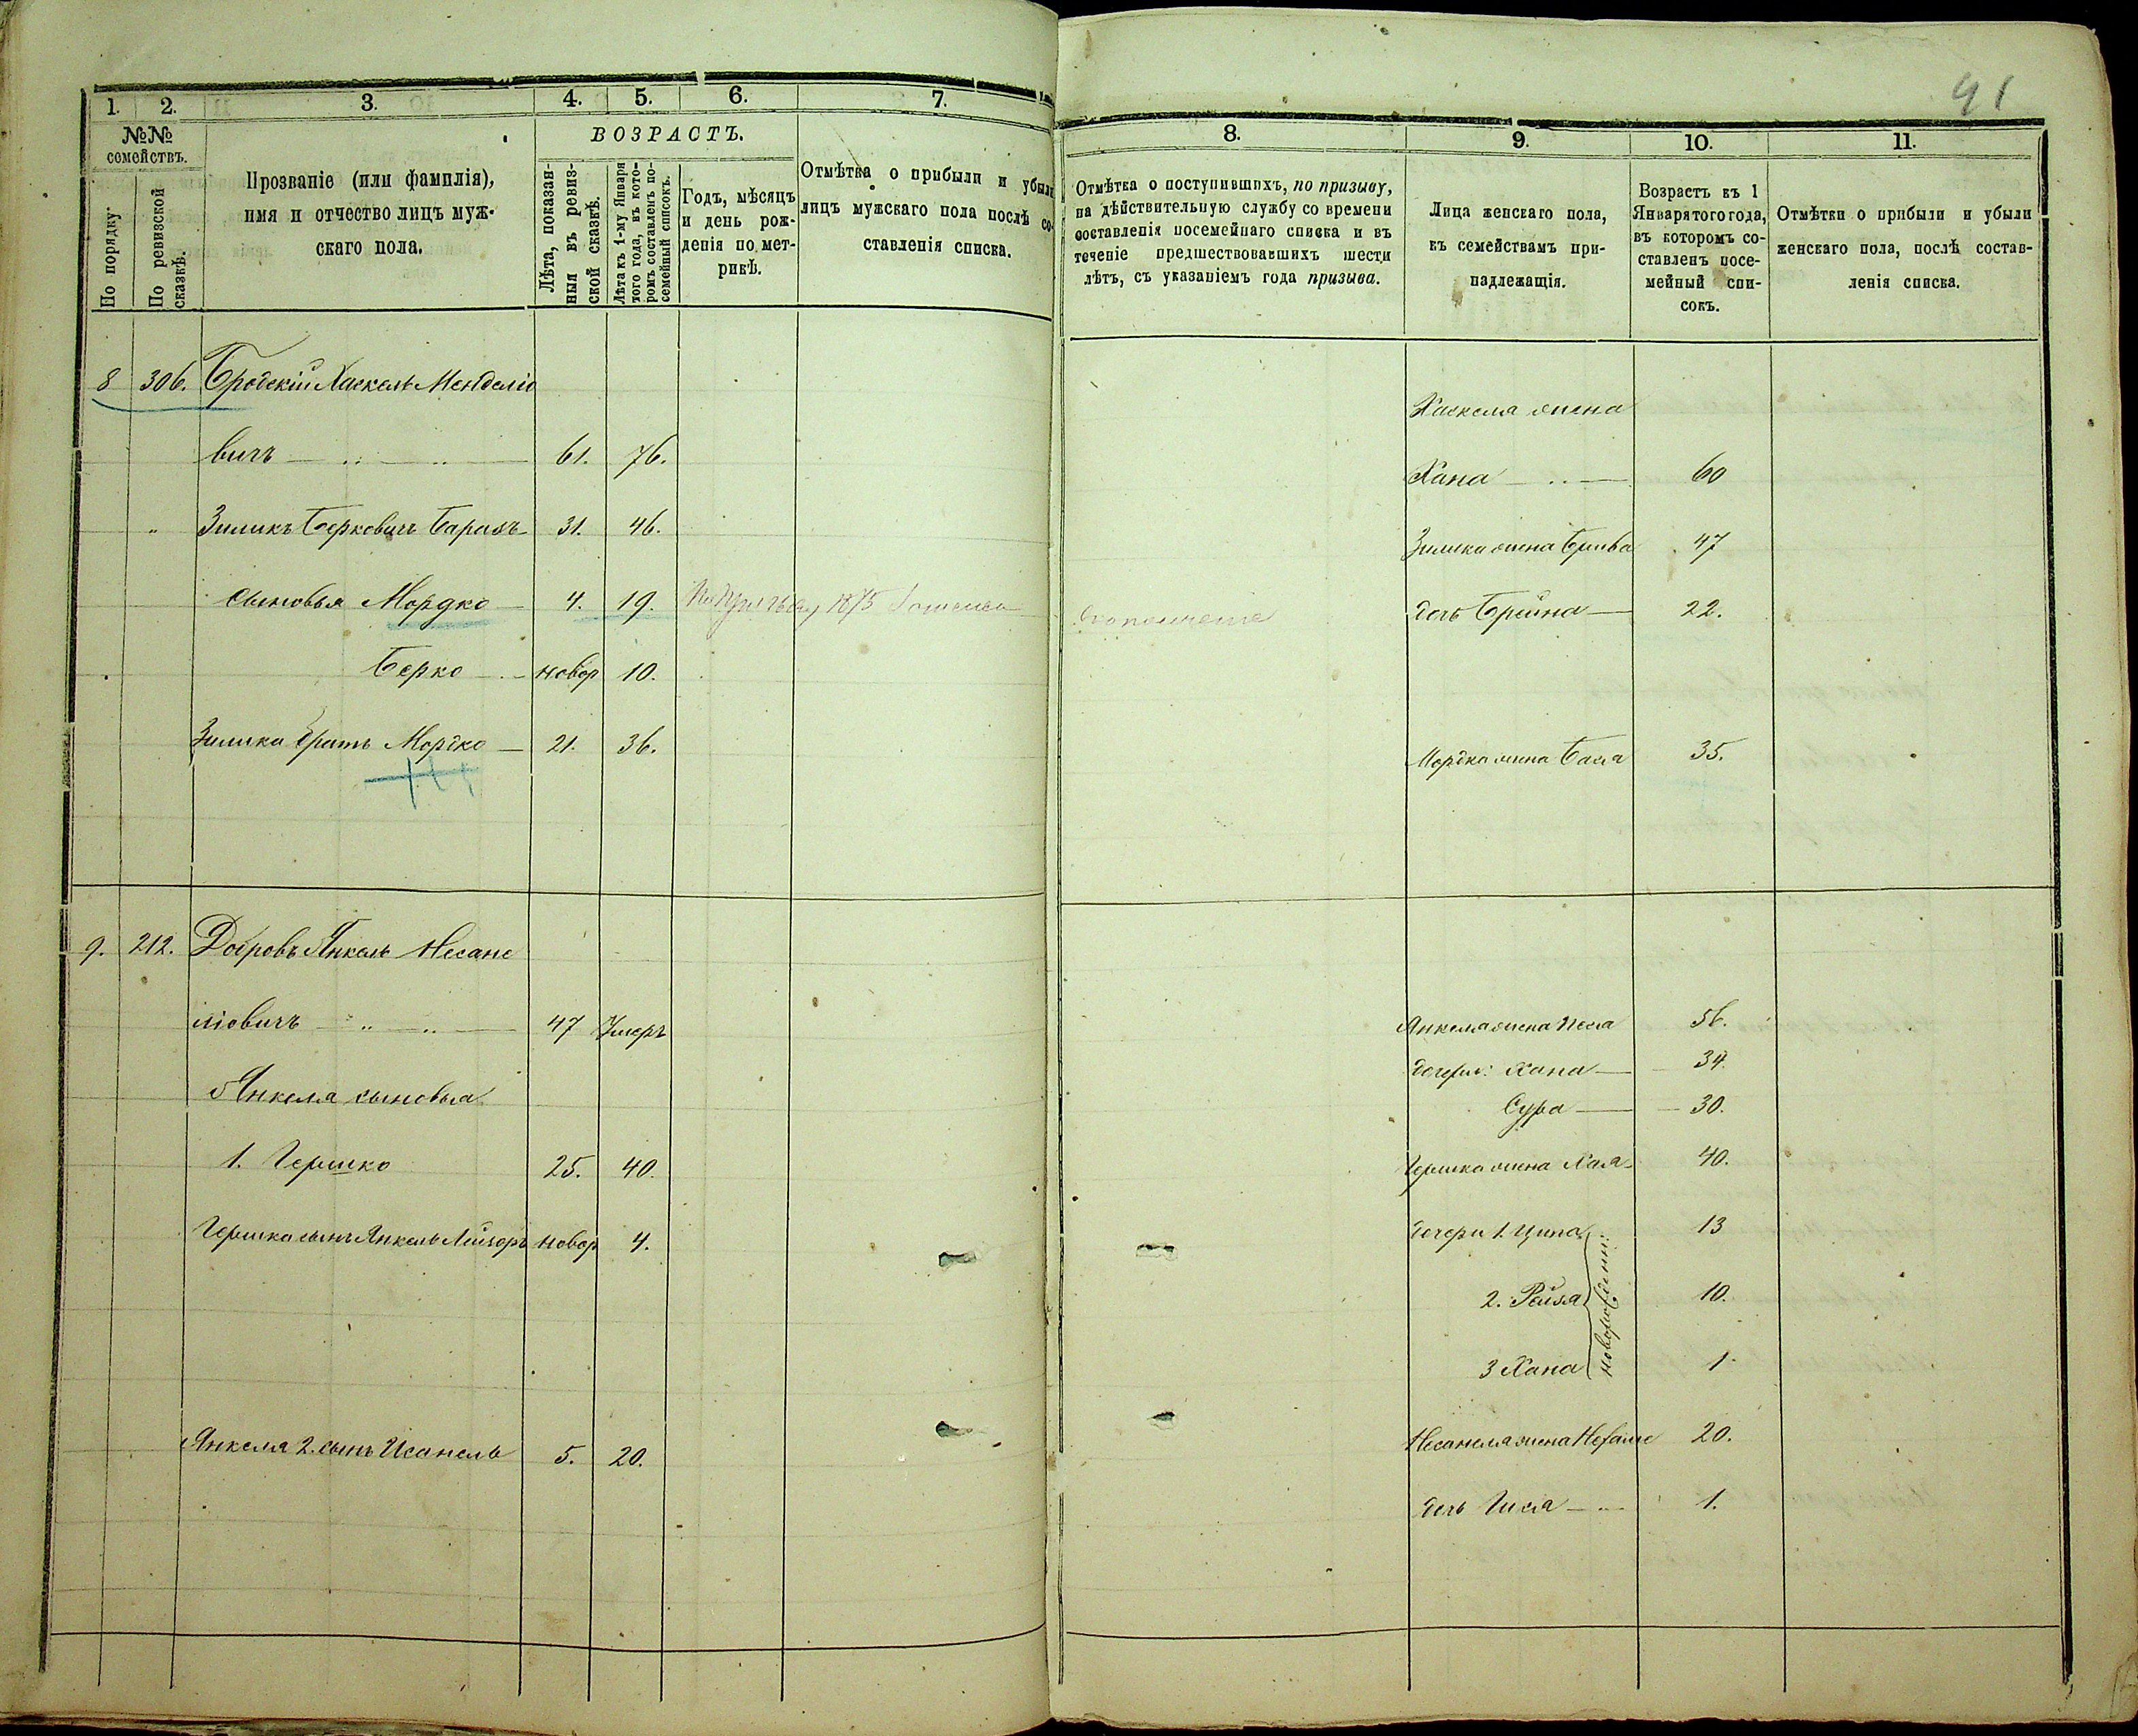 41
1. 2. 3. 4. 5. 6. 7.
№№ семействъ.
По порядку.
По ревизской сказкѣ.
Прозваніе (или фамилія),
имя и отчество лицъ муж-
скаго пола.
ВОЗРАСТЪ.
Лѣта, показан-
ныя въ ревиз-
ской сказкѣ.
Лѣта къ 1-му Января
того года, въ кото-
ромъ составленъ по-
семейный списокъ.
Годъ, мѣсяцъ
и день рож-
денія по мет-
рикѣ.
Отмѣтка о прибыли и убыли
лицъ мужскаго пола послѣ со-
ставленія списка.
8 306. Бродскій Хаскель Менделіо
вичъ 61. 76.
Зимикъ Берковичъ 31. 46.
сыновья Мордко 4. 19. 1875
Берко новор 10.
Зимика братъ Мордко 21. 36.
9. 212. Янкель Несане
ліовичъ 47 Умеръ
Янкеля сыновья
1. Гершко 25. 40.
Гершка сынъ Янкель Лейзоръ новор 4.
Янкеля 2. сынъ Исанель 5. 20.
8. 9. 10. 11.
Отмѣтка о поступившихъ, по призыву,
на дѣйствительную службу со времени
составленія посемейнаго списка и въ
теченіе предшествовавшихъ шести
лѣтъ, съ указаніемъ года призыва.
Лица женскаго пола,
къ семействамъ при-
надлежащія.
Возрастъ къ 1
Января того года,
въ которомъ со-
ставленъ посе-
мейный спи-
сокъ.
Отмѣтки о прибыли и убыли
женскаго пола, послѣ состав-
ленія списка.
Хаскеля жена
Хана 60
Зимика жена 47
дочь Брейна 22.
Мордка жена Бася 35.
Янкеля жена Песя 56.
дочери: Хана 34.
Сура 30.
Гершка жена Хая 40.
дочери 1. Ципа 13
2. Рейзя 10.
3 Хана 1
новорожденныя
Несанеля жена 20.
дочь 1.